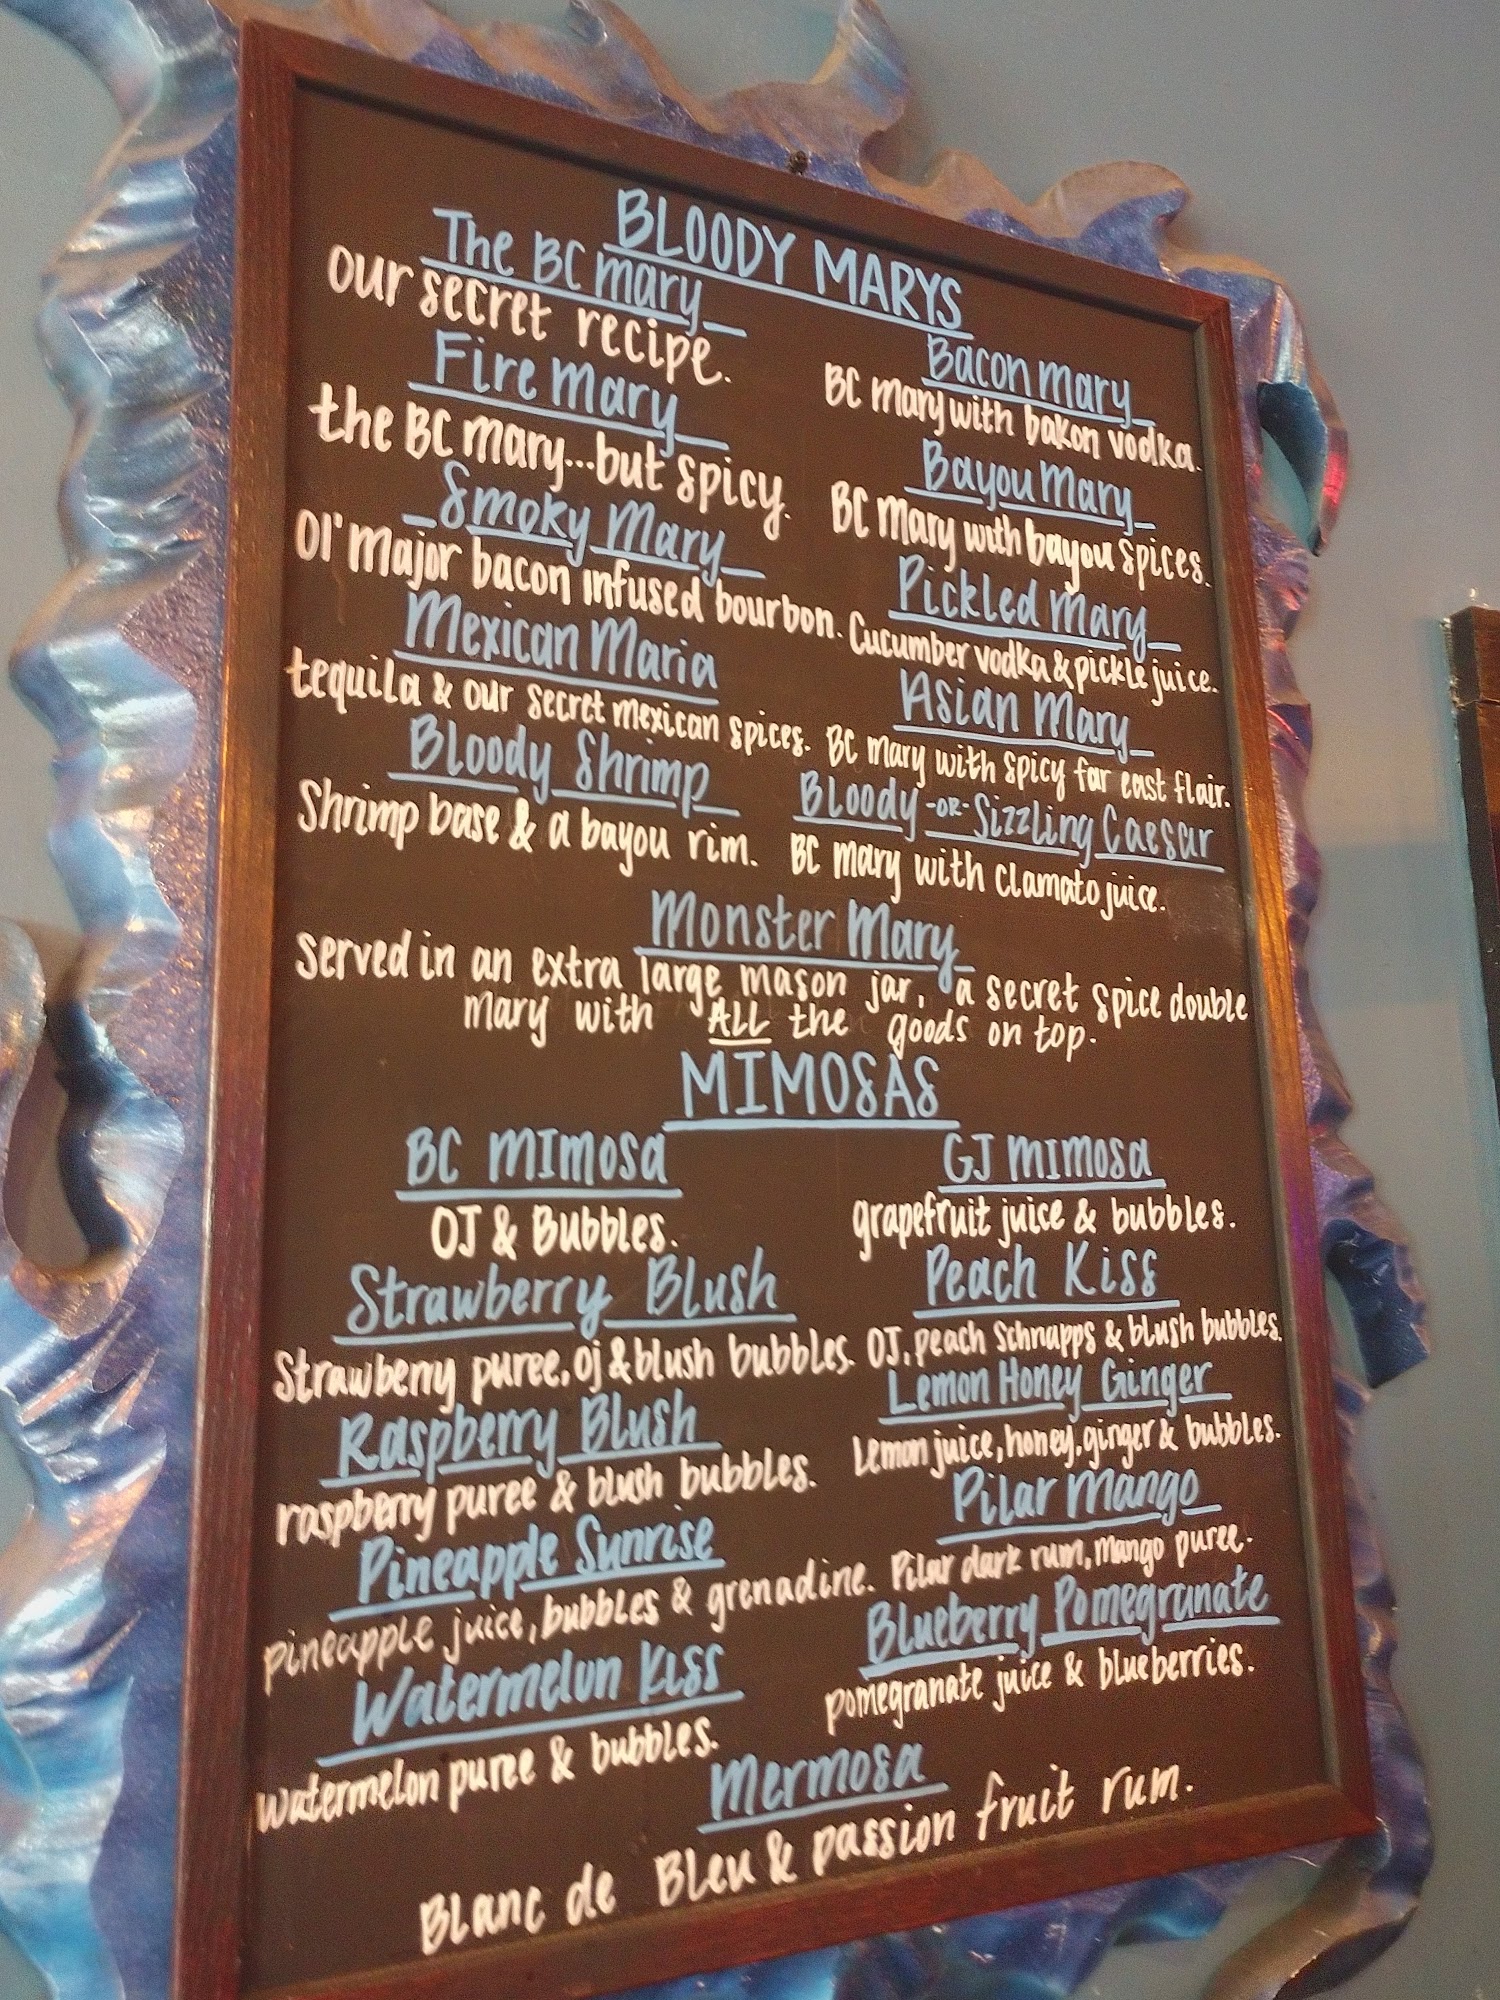 BLOODY MARYS
The BC Mary
our secret recipe.
Fire Mary
the BC Mary...but spicy.
Smoky Mary
Ol' Major bacon infused bourbon.
Mexican Maria
tequila & our secret mexican spices.
Bloody Shrimp
Shrimp base & a bayou rim.
Bacon Mary
BC Mary with bakon vodka.
Bayou Mary
BC Mary with bayou spices.
Pickled Mary
Cucumber vodka & pickle juice.
Asian Mary
BC Mary with spicy far east flair.
Bloody -OR- Sizzling Caesar
BC Mary with clamato juice.
Monster Mary
Served in an extra large mason jar, a secret spice double
Mary with ALL the goods on top.
MIMOSAS
BC MImosa
OJ & Bubbles.
Strawberry Blush
Strawberry puree, oj & blush bubbles.
Raspberry Blush
raspberry puree & blush bubbles.
Pineapple Sunrise
pineapple juice, bubbles & grenadine.
Watermelon Kiss
watermelon puree & bubbles.
GJ MImosa
grapefruit juice & bubbles.
Peach Kiss
OJ, peach Schnapps & blush bubbles.
Lemon Honey Ginger
Lemon juice, honey, ginger & bubbles.
Pilar Mango
Pilar dark rum, mango puree.
Blueberry Pomegranate
pomegranate juice & blueberries.
Mermosa
Blanc de Bleu & passion fruit rum.